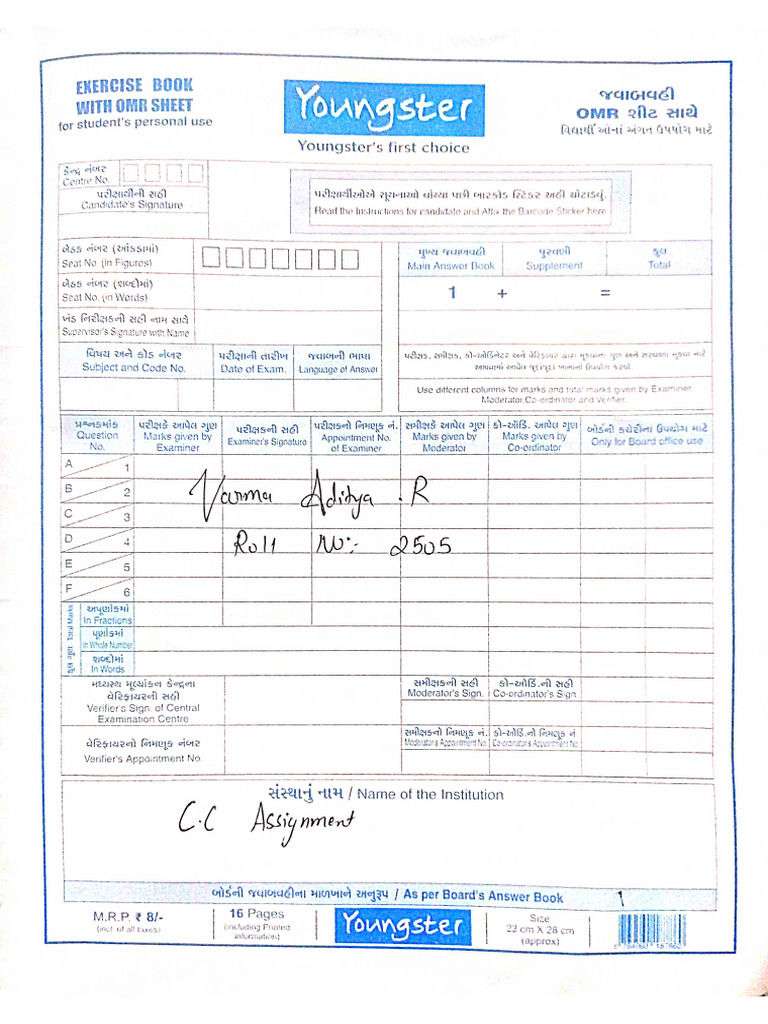 EXERCISE BOOK
WITH OMR SHEET
for student's personal use
Youngster
Youngster's first choice
જવાબવહી
OMR શીટ સાથે
વિદ્યાર્થીઓનાં અંગત ઉપયોગ માટે
કેન્દ્ર નંબર
Centre No.
પરીક્ષાર્થીની સહી
Candidate's Signature
પરીક્ષાર્થીઓએ સૂચનાઓ વાંચ્યા પછી બારકોડ સ્ટિકર અહીં ચોંટાડવું.
Read the Instructions for candidate and Affix the Barcode Sticker here
બેઠક નંબર (આંકડામાં)
Seat No. (in Figures)
બેઠક નંબર (શબ્દોમાં)
Seat No. (in Words)
ખંડ નિરીક્ષકની સહી નામ સાથે
Supervisor's Signature with Name
મુખ્ય જવાબવહી પુરવણી કુલ
Main Answer Book Supplement Total
1 + =
વિષય અને કોડ નંબર પરીક્ષાની તારીખ જવાબની ભાષા
Subject and Code No. Date of Exam. Language of Answer
પરીક્ષક, સમીક્ષક, કો-ઓર્ડિનેટર અને વેરિફાયર દ્વારા મૂકવાના ગુણ અને સરવાળા મૂકવા માટે
આપવામાં આવેલ જુદાંજુદાં ખાનાનો ઉપયોગ કરવો.
Use different columns for marks and total marks given by Examiner,
Moderator,Co-ordinator and Verifier.
પ્રશ્નક્રમાંક પરીક્ષકે આપેલ ગુણ પરીક્ષકની સહી પરીક્ષકનો નિમણૂક નં. સમીક્ષકે આપેલ ગુણ કો-ઑર્ડિ. આપેલ ગુણ બોર્ડની કચેરીના ઉપયોગ માટે
Question No. Marks given by Examiner Examiner's Signature Appointment No. of Examiner Marks given by Moderator Marks given by Co-ordinator Only for Board office use
A 1
B 2
Varma Aditya .R
C 3
D 4
Roll No:- 2505
E 5
F 6
કુલ ગુણ Total Marks
અપૂર્ણાંકમાં
In Fractions
પૂર્ણાંકમાં
In Whole Number
શબ્દોમાં
In Words
મધ્યસ્થ મૂલ્યાંકન કેન્દ્રના
વેરિફાયરની સહી
Verifier's Sign. of Central
Examination Centre
સમીક્ષકની સહી કો-ઓર્ડિ.ની સહી
Moderator's Sign. Co-ordinator's Sign.
વેરિફાયરનો નિમણૂક નંબર
Verifier's Appointment No.
સમીક્ષકનો નિમણૂક નં. કો-ઓર્ડિ.નો નિમણૂક નં
Moderator's Appointment No. Co-ordinator's Appointment No
સંસ્થાનું નામ / Name of the Institution
C.C Assignment
બોર્ડની જવાબવહીના માળખાને અનુરૂપ / As per Board's Answer Book
1
M.R.P. ₹ 8/-
(incl. of all taxes)
16 Pages
(including Printed
information)
Youngster
Size
22 cm X 28 cm
(approx)